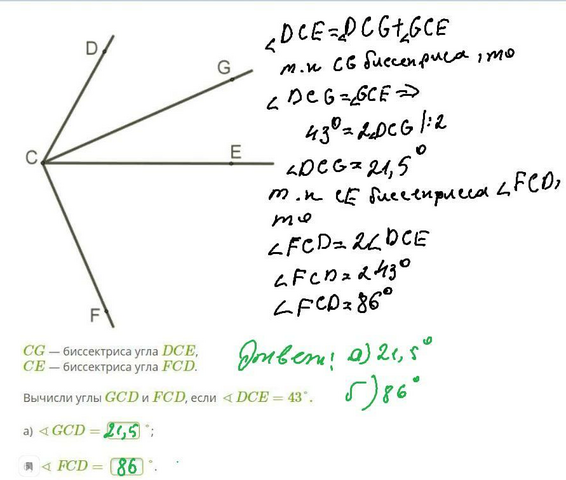 D
G
C
E
F
∠DCE=∠DCG+∠GCE
т.к CG биссектриса, то
∠DCG=∠GCE ⇒
43°=2∠DCG |:2
∠DCG=21,5°
т.к CE биссектриса ∠FCD,
то
∠FCD=2∠DCE
∠FCD=2 43°
∠FCD=86°
CG — биссектриса угла DCE,
CE — биссектриса угла FCD.
Ответ: а) 21,5°
б) 86°
Вычисли углы GCD и FCD, если ∢ DCE = 43°.
а) ∢ GCD = 21,5 °;
∢ FCD = 86 °.